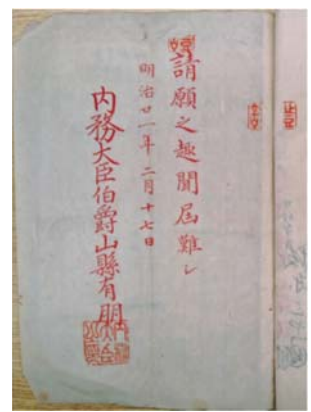 請願之趣聞届難シ
明治廿一年二月十七日
内務大臣伯爵山縣有朋